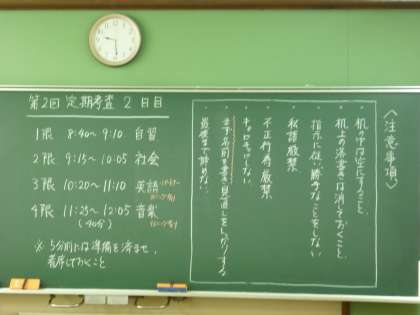 第2回 定期考査 2日目
1限 8:40～9:10 自習
2限 9:15～10:05 社会
3限 10:20～11:10 英語
4限 11:25～12:05 音楽
(40分)
※ 5分前には準備を済ませ、
着席しておくこと
〈注意事項〉
・机の中は空にすること
・机上の落書きは消しておくこと
・指示に従い勝手なことをしない
・私語厳禁
・不正行為厳禁
・キョロキョロしない
・まず名前を書く・見直しをしっかりする
・最後まで諦めない